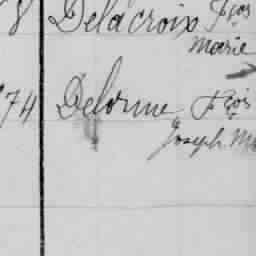 8 Delacroix Fçois
Marie
74 Delorme Fçois
Joseph M